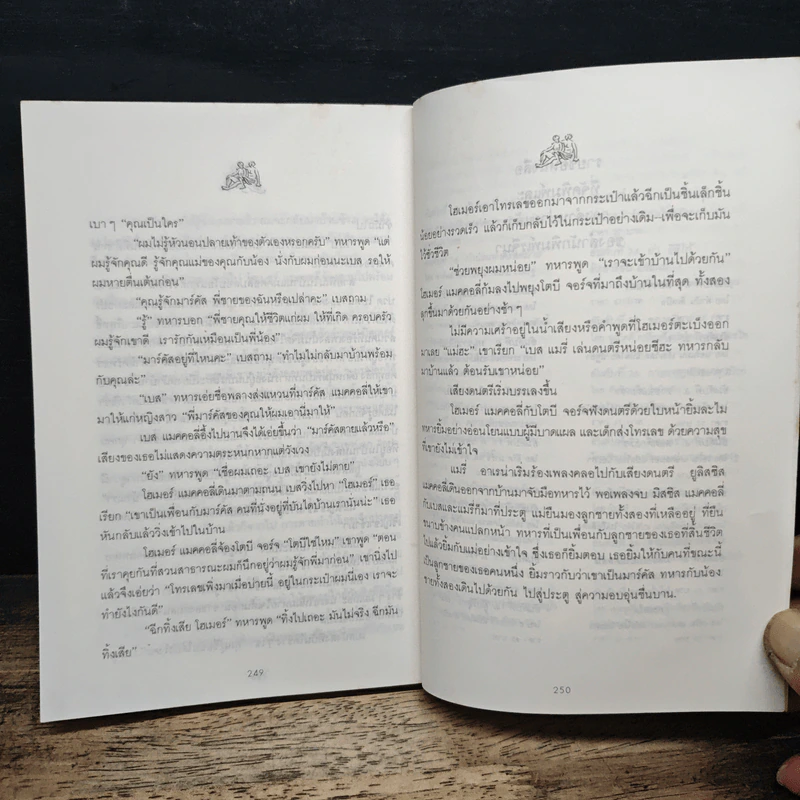 เบา ๆ “คุณเป็นใคร”
“ผมไม่รู้หัวนอนปลายเท้าของตัวเองหรอกครับ” ทหารพูด “แต่
ผมรู้จักคุณดี รู้จักคุณแม่ของคุณกับน้อง นั่งกับผมก่อนนะเบส รอให้
ผมหายตื่นเต้นก่อน”
“คุณรู้จักมาร์คัส พี่ชายของฉันหรือเปล่าคะ” เบสถาม
“รู้” ทหารบอก “พี่ชายคุณให้ชีวิตแก่ผม ให้ที่เกิด ครอบครัว
ผมรู้จักเขาดี เรารักกันเหมือนเป็นพี่น้อง”
“มาร์คัสอยู่ที่ไหนคะ” เบสถาม “ทำไมไม่กลับมาบ้านพร้อม
กับคุณล่ะ”
“เบส” ทหารเอ่ยชื่อพลางส่งแหวนที่มาร์คัส แมคคอลี่ให้เขา
มาให้แก่หญิงสาว “พี่มาร์คัสของคุณให้ผมเอานี่มาให้”
เบส แมคคอลี่อึ้งไปนานจึงได้เอ่ยขึ้นว่า “มาร์คัสตายแล้วหรือ”
เสียงของเธอไม่แสดงความตระหนกหากแต่วังเวง
“ยัง” ทหารพูด “เชื่อผมเถอะ เบส เขายังไม่ตาย”
โฮเมอร์ แมคคอลี่เดินมาตามถนน เบสวิ่งไปหา “โฮเมอร์” เธอ
เรียก “เขาเป็นเพื่อนกับมาร์คัส คนที่นั่งอยู่ที่บันไดบ้านเรานั่นน่ะ” เธอ
หันกลับแล้ววิ่งเข้าไปในบ้าน
โฮเมอร์ แมคคอลี่จ้องโตบี จอร์จ “โตบีใช่ไหม” เขาพูด “ตอน
ที่เราคุยกันที่สวนสาธารณะผมก็นึกอยู่ว่าผมรู้จักพี่มาก่อน” เขานิ่งไป
แล้วจึงเอ่ยว่า “โทรเลขเพิ่งมาเมื่อบ่ายนี้ อยู่ในกระเป๋าผมนี่เอง เราจะ
ทำยังไงกันดี”
“ฉีกทิ้งเสีย โฮเมอร์” ทหารพูด “ทิ้งไปเถอะ มันไม่จริง ฉีกมัน
ทิ้งเสีย”
249
โฮเมอร์เอาโทรเลขออกมาจากกระเป๋าแล้วฉีกเป็นชิ้นเล็กชิ้น
น้อยอย่างรวดเร็ว แล้วก็เก็บกลับไว้ในกระเป๋าอย่างเดิม—เพื่อจะเก็บมัน
ไว้ชั่วชีวิต
“ช่วยพยุงผมหน่อย” ทหารพูด “เราจะเข้าบ้านไปด้วยกัน”
โฮเมอร์ แมคคอลี่ก้มลงไปพยุงโตบี จอร์จที่มาถึงบ้านในที่สุด ทั้งสอง
ลุกขึ้นมาด้วยกันอย่างช้า ๆ
ไม่มีความเศร้าอยู่ในน้ำเสียงหรือคำพูดที่โฮเมอร์ตะเบ็งออก
มาเลย “แม่ฮะ” เขาเรียก “เบส แมรี่ เล่นดนตรีหน่อยซีฮะ ทหารกลับ
มาบ้านแล้ว ต้อนรับเขาหน่อย”
เสียงดนตรีเริ่มบรรเลงขึ้น
โฮเมอร์ แมคคอลี่กับโตบี จอร์จฟังดนตรีด้วยใบหน้ายิ้มละไม
ทหารยิ้มอย่างอ่อนโยนแบบผู้มีบาดแผล และเด็กส่งโทรเลข ด้วยความสุข
ที่เขายังไม่เข้าใจ
แมรี่ อาเรน่าเริ่มร้องเพลงคลอไปกับเสียงดนตรี ยูลิสซีส
แมคคอลี่เดินออกจากบ้านมาจับมือทหารไว้ พอเพลงจบ มิสซิส แมคคอลี่
กับเบสและแมรี่ก็มาที่ประตู แม่ยืนมองลูกชายทั้งสองที่เหลืออยู่ ที่ยืน
ขนาบข้างคนแปลกหน้า ทหารที่เป็นเพื่อนกับลูกชายของเธอที่สิ้นชีวิต
ไปแล้วยิ้มกับแม่อย่างเข้าใจ ซึ่งเธอก็ยิ้มตอบ เธอยิ้มให้กับคนที่ขณะนี้
เป็นลูกชายของเธอคนหนึ่ง ยิ้มราวกับว่าเขาเป็นมาร์คัส ทหารกับน้อง
ชายทั้งสองเดินไปด้วยกัน ไปสู่ประตู สู่ความอบอุ่นชื่นบาน.
250